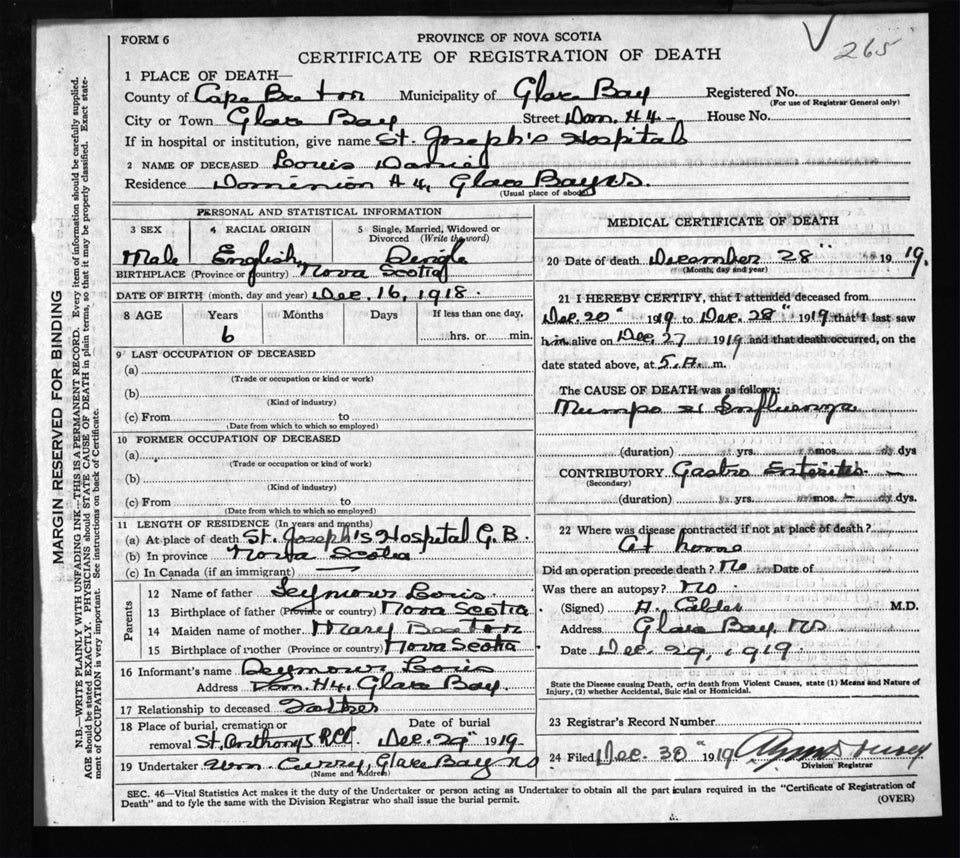 265
FORM 6
PROVINCE OF NOVA SCOTIA
CERTIFICATE OF REGISTRATION OF DEATH
1 PLACE OF DEATH—
County of Cape Breton Municipality of Glace Bay Registered No.
(For use of Registrar General only)
City or Town Glace Bay Street Dom. #4- House No.
If in hospital or institution, give name St. Joseph's Hospital
2 NAME OF DECEASED Louis Daniel
Residence Dominion #4, Glace Bay NS.
(Usual place of abode)
PERSONAL AND STATISTICAL INFORMATION
3 SEX 4 RACIAL ORIGIN 5 Single, Married, Widowed or
Divorced (Write the word)
Male English Single
BIRTHPLACE (Province or country) Nova Scotia
DATE OF BIRTH (month, day and year) Dec. 16, 1918.
8 AGE Years Months Days If less than one day,
6 hrs. or min.
9 LAST OCCUPATION OF DECEASED
(a)
(Trade or occupation or kind or work)
(b)
(Kind of industry)
(c) From to
(Date from which to which so employed)
10 FORMER OCCUPATION OF DECEASED
(a)
(Trade or occupation or kind of work)
(b)
(Kind of industry)
(c) From to
(Date from which to which so employed)
11 LENGTH OF RESIDENCE (In years and months)
(a) At place of death St. Joseph's Hospital G.B.
(b) In province Nova Scotia
(c) In Canada (if an immigrant) —
Parents
12 Name of father Seymour Louis
13 Birthplace of father (Province or country) Nova Scotia
14 Maiden name of mother Mary Beaton
15 Birthplace of mother (Province or country) Nova Scotia
16 Informant's name Seymour Louis
Address Dom. #4, Glace Bay.
17 Relationship to deceased Father
18 Place of burial, cremation or Date of burial
removal St. Anthony's R.C.C. Dec. 29" 1919.
19 Undertaker Wm Curry, Glace Bay NS
(Name and Address)
MEDICAL CERTIFICATE OF DEATH
20 Date of death December 28" 1919.
(Month, day and year)
21 I HEREBY CERTIFY, that I attended deceased from
Dec. 20" 1919 to Dec. 28" 1919 that I last saw
him alive on Dec. 27 1919 and that death occurred, on the
date stated above, at 5.A. m.
The CAUSE OF DEATH was as follows:
Mumps & Influenza
(duration) yrs. mos. dys
CONTRIBUTORY Gastro Enteritis -
(Secondary)
(duration) yrs. mos. dys.
22 Where was disease contracted if not at place of death?
At home
Did an operation precede death? No Date of
Was there an autopsy? No
(Signed) A. Calder M.D.
Address Glace Bay, NS
Date Dec. 29, 1919.
State the Disease causing Death, or in death from Violent Causes, state (1) Means and Nature of
Injury, (2) whether Accidental, Suicidal or Homicidal.
23 Registrar's Record Number
24 Filed Dec. 30" 1919
Division Registrar
SEC. 46—Vital Statistics Act makes it the duty of the Undertaker or person acting as Undertaker to obtain all the particulars required in the "Certificate of Registration of
Death" and to fyle the same with the Division Registrar who shall issue the burial permit.
(OVER)
MARGIN RESERVED FOR BINDING
N.B.—WRITE PLAINLY WITH UNFADING INK—THIS IS A PERMANENT RECORD. Every item of information should be carefully supplied.
AGE should be stated EXACTLY. PHYSICIANS should STATE CAUSE OF DEATH in plain terms, so that it may be properly classified. Exact state-
ment of OCCUPATION is very important. See instructions on back of Certificate.